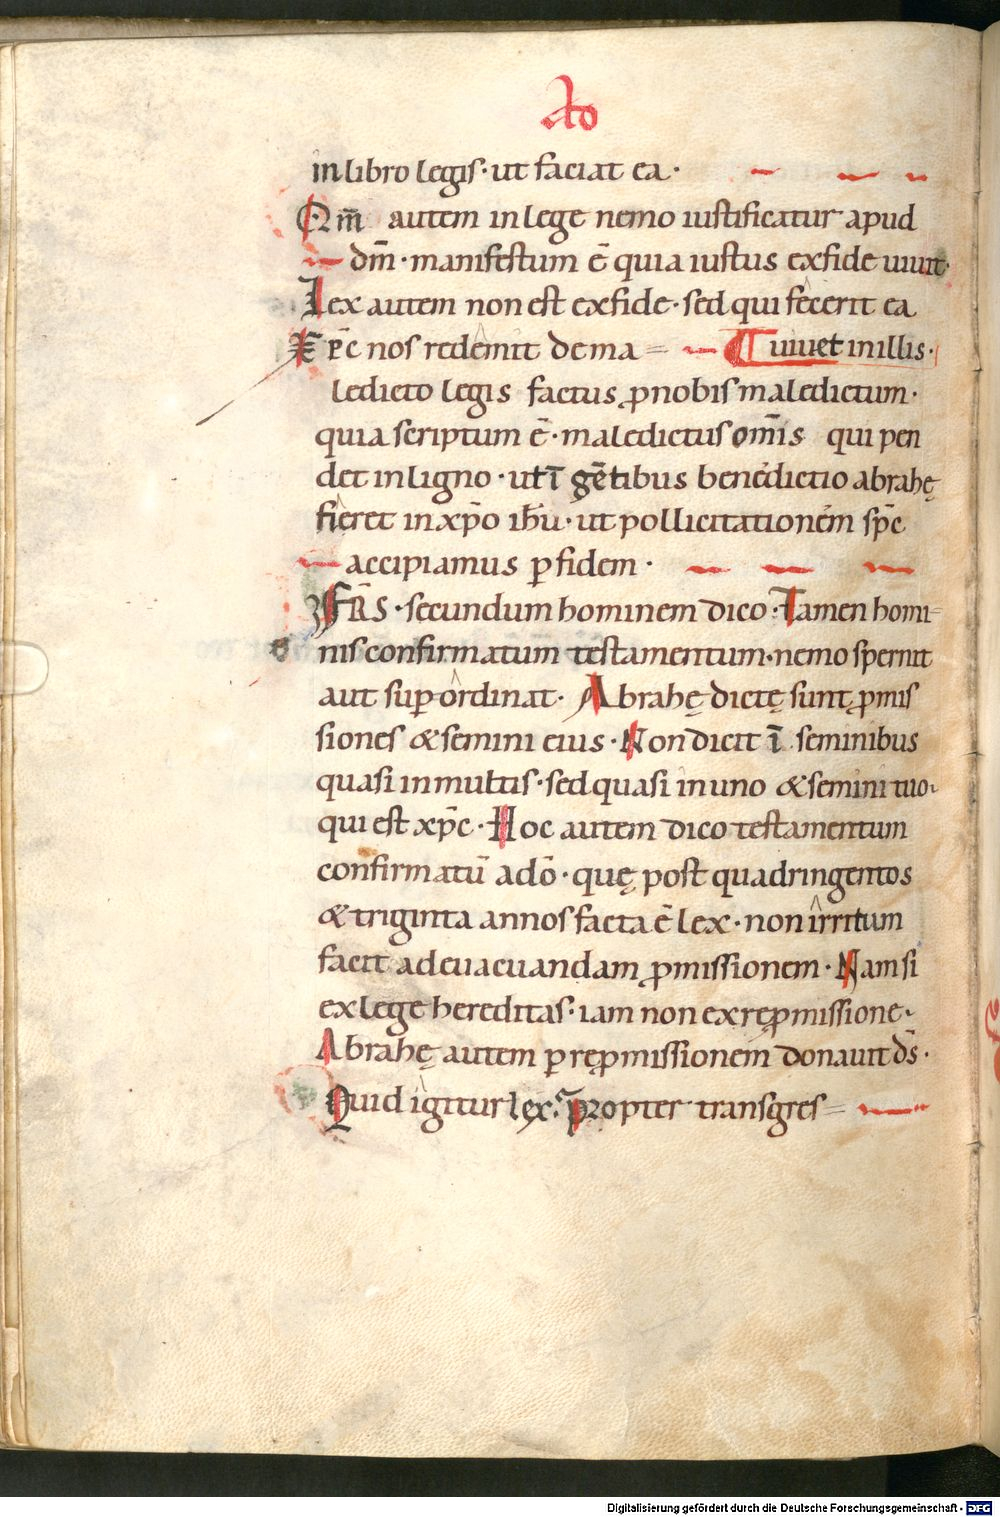 Ad
in libro legis · ut faciat ea ·
Qm̄ autem in lege nemo iustificatur apud
dm̄ · manifestum ē quia iustus ex fide uiuit ·
Lex autem non est ex fide · sed qui fecerit ea
Xp̄c nos redemit de ma= uiuet in illis ·
ledicto legis factus ꝓ nobis maledictum ·
quia scriptum ē · maledictus om̄is qui pen
det in ligno · ut ī gētibus benedictio abrahę
fieret in xp̄o ih̄u · ut pollicitationem sp̄c
accipiamus ꝑ fidem ·
FR̄S · secundum hominem dico · Tamen homi=
nis confirmatum testamentum · nemo spernit
aut suꝑordinat · Abrahę dictę sunt ꝓmis
siones & semini eius · Non dicit ī seminibus
quasi in multis · sed quasi in uno & semini tuo ·
qui est xp̄c · Hoc autem dico testamentum
confirmatū a dō · quę post quadringentos
& triginta annos facta ē lex · non irritum
facit ad euacuandam ꝓmissionem · Nam si
ex lege hereditas · iam non ex reꝓmissione ·
Abrahę autem ꝑ reꝓmissionem donauit d̄s ·
Quid igitur lex? Propter transgres=
Digitalisierung gefördert durch die Deutsche Forschungsgemeinschaft - DFG